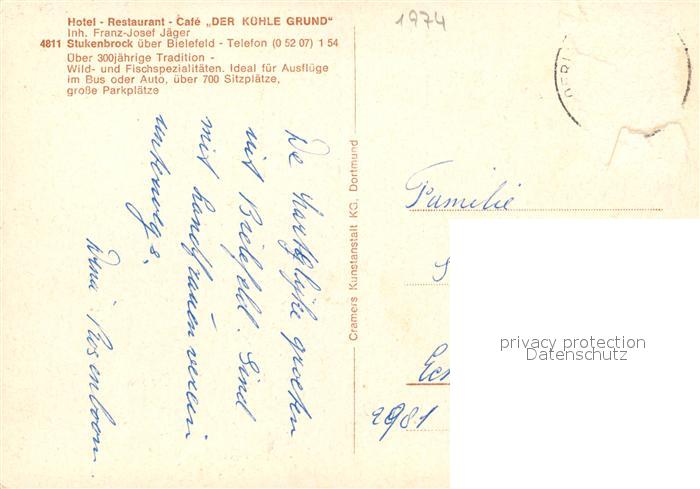 Hotel - Restaurant - Café „DER KÜHLE GRUND“
Inh. Franz-Josef Jäger
4811 Stukenbrock über Bielefeld - Telefon (0 52 07) 1 54
Über 300jährige Tradition -
Wild- und Fischspezialitäten. Ideal für Ausflüge
im Bus oder Auto, über 700 Sitzplätze,
große Parkplätze
1974
mit Bielefeld. Sind
mit Landfrauenverein
unterwegs.
Rosenboom.
Cramers Kunstanstalt KG. Dortmund
Familie
2981
privacy protection
Datenschutz